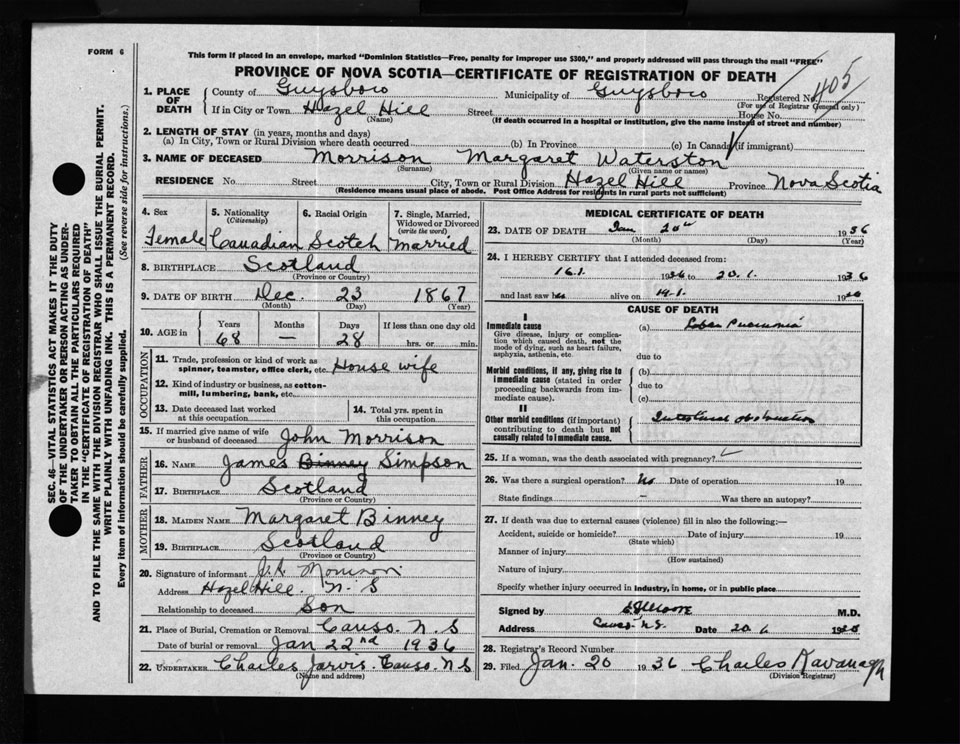 FORM 6
This form if placed in an envelope, marked "Dominion Statistics—Free, penalty for improper use $300," and properly addressed will pass through the mail "FREE"
PROVINCE OF NOVA SCOTIA—CERTIFICATE OF REGISTRATION OF DEATH
405
1. PLACE OF DEATH
County of Guysboro Municipality of Guysboro Registered No.
(For use of Registrar General only)
If in City or Town Hazel Hill Street House No.
(Name) (If death occurred in a hospital or institution, give the name instead of street and number)
2. LENGTH OF STAY (in years, months and days)
(a) In City, Town or Rural Division where death occurred (b) In Province (c) In Canada (if immigrant)
3. NAME OF DECEASED Morrison Margaret Waterston
(Surname) (Given name or names)
RESIDENCE No. Street City, Town or Rural Division Hazel Hill Province Nova Scotia
(Residence means usual place of abode. Post Office Address for residents in rural parts not sufficient)
4. Sex
Female
5. Nationality
(Citizenship)
Canadian
6. Racial Origin
Scotch
7. Single, Married, Widowed or Divorced
(write the word)
Married
8. BIRTHPLACE Scotland
(Province or Country)
9. DATE OF BIRTH Dec. 23 1867
(Month) (Day) (Year)
10. AGE in Years Months Days If less than one day old
68 — 28 hrs. or min.
OCCUPATION
11. Trade, profession or kind of work as spinner, teamster, office clerk, etc. House wife
12. Kind of industry or business, as cotton-mill, lumbering, bank, etc.
13. Date deceased last worked at this occupation
14. Total yrs. spent in this occupation
15. If married give name of wife or husband of deceased John Morrison
FATHER
16. NAME James Binney Simpson
17. BIRTHPLACE Scotland
(Province or Country)
MOTHER
18. MAIDEN NAME Margaret Binney
19. BIRTHPLACE Scotland
(Province or Country)
20. Signature of informant Morrison
Address Hazel Hill. N.S
Relationship to deceased Son
21. Place of Burial, Cremation or Removal Canso. N.S
Date of burial or removal Jan 22nd 1936
22. UNDERTAKER Charles Jarvis. Canso. NS
(Name and address)
MEDICAL CERTIFICATE OF DEATH
23. DATE OF DEATH Jan 20th 1936
(Month) (Day) (Year)
24. I HEREBY CERTIFY that I attended deceased from:
16.1. 1936 to 20.1. 1936
and last saw her alive on 19.1. 19
CAUSE OF DEATH
I
Immediate cause
Give disease, injury or complication which caused death, not the mode of dying, such as heart failure, asphyxia, asthenia, etc.
(a) Lobar Pneumonia
due to
Morbid conditions, if any, giving rise to immediate cause (stated in order proceeding backwards from immediate cause).
(b)
due to
(c)
II
Other morbid conditions (if important) contributing to death but not causally related to immediate cause.
Intestinal obstruction
25. If a woman, was the death associated with pregnancy?
26. Was there a surgical operation? No Date of operation 19
State findings – Was there an autopsy?
27. If death was due to external causes (violence) fill in also the following:—
Accident, suicide or homicide? Date of injury 19
(State which)
Manner of injury
(How sustained)
Nature of injury
Specify whether injury occurred in industry, in home, or in public place
Signed by Moore M.D.
Address Canso N.S. Date 20 19
28. Registrar's Record Number
29. Filed Jan. 20 1936 Charles Kavanagh
(Division Registrar)
SEC. 46—VITAL STATISTICS ACT MAKES IT THE DUTY
OF THE UNDERTAKER OR PERSON ACTING AS UNDER-
TAKER TO OBTAIN ALL THE PARTICULARS REQUIRED
IN THE "CERTIFICATE OF REGISTRATION OF DEATH"
AND TO FILE THE SAME WITH THE DIVISION REGISTRAR WHO SHALL ISSUE THE BURIAL PERMIT.
WRITE PLAINLY WITH UNFADING INK. THIS IS A PERMANENT RECORD.
Every item of information should be carefully supplied. (See reverse side for instructions.)